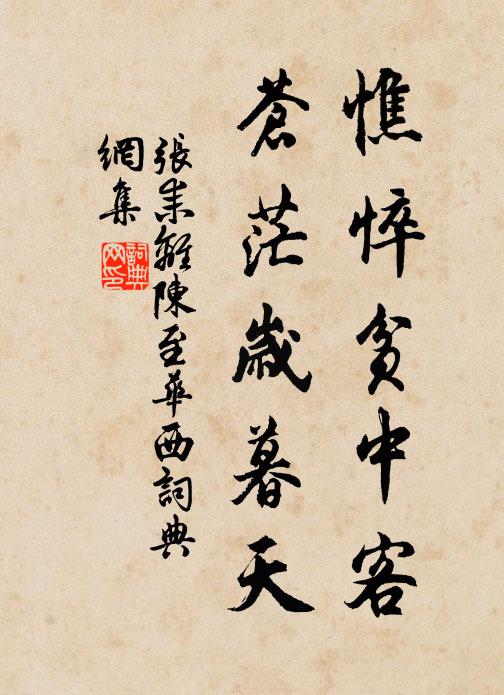 憔悴貧中客
蒼茫歲暮天
張耒離陳至華西詞典
網集
詞典
网印